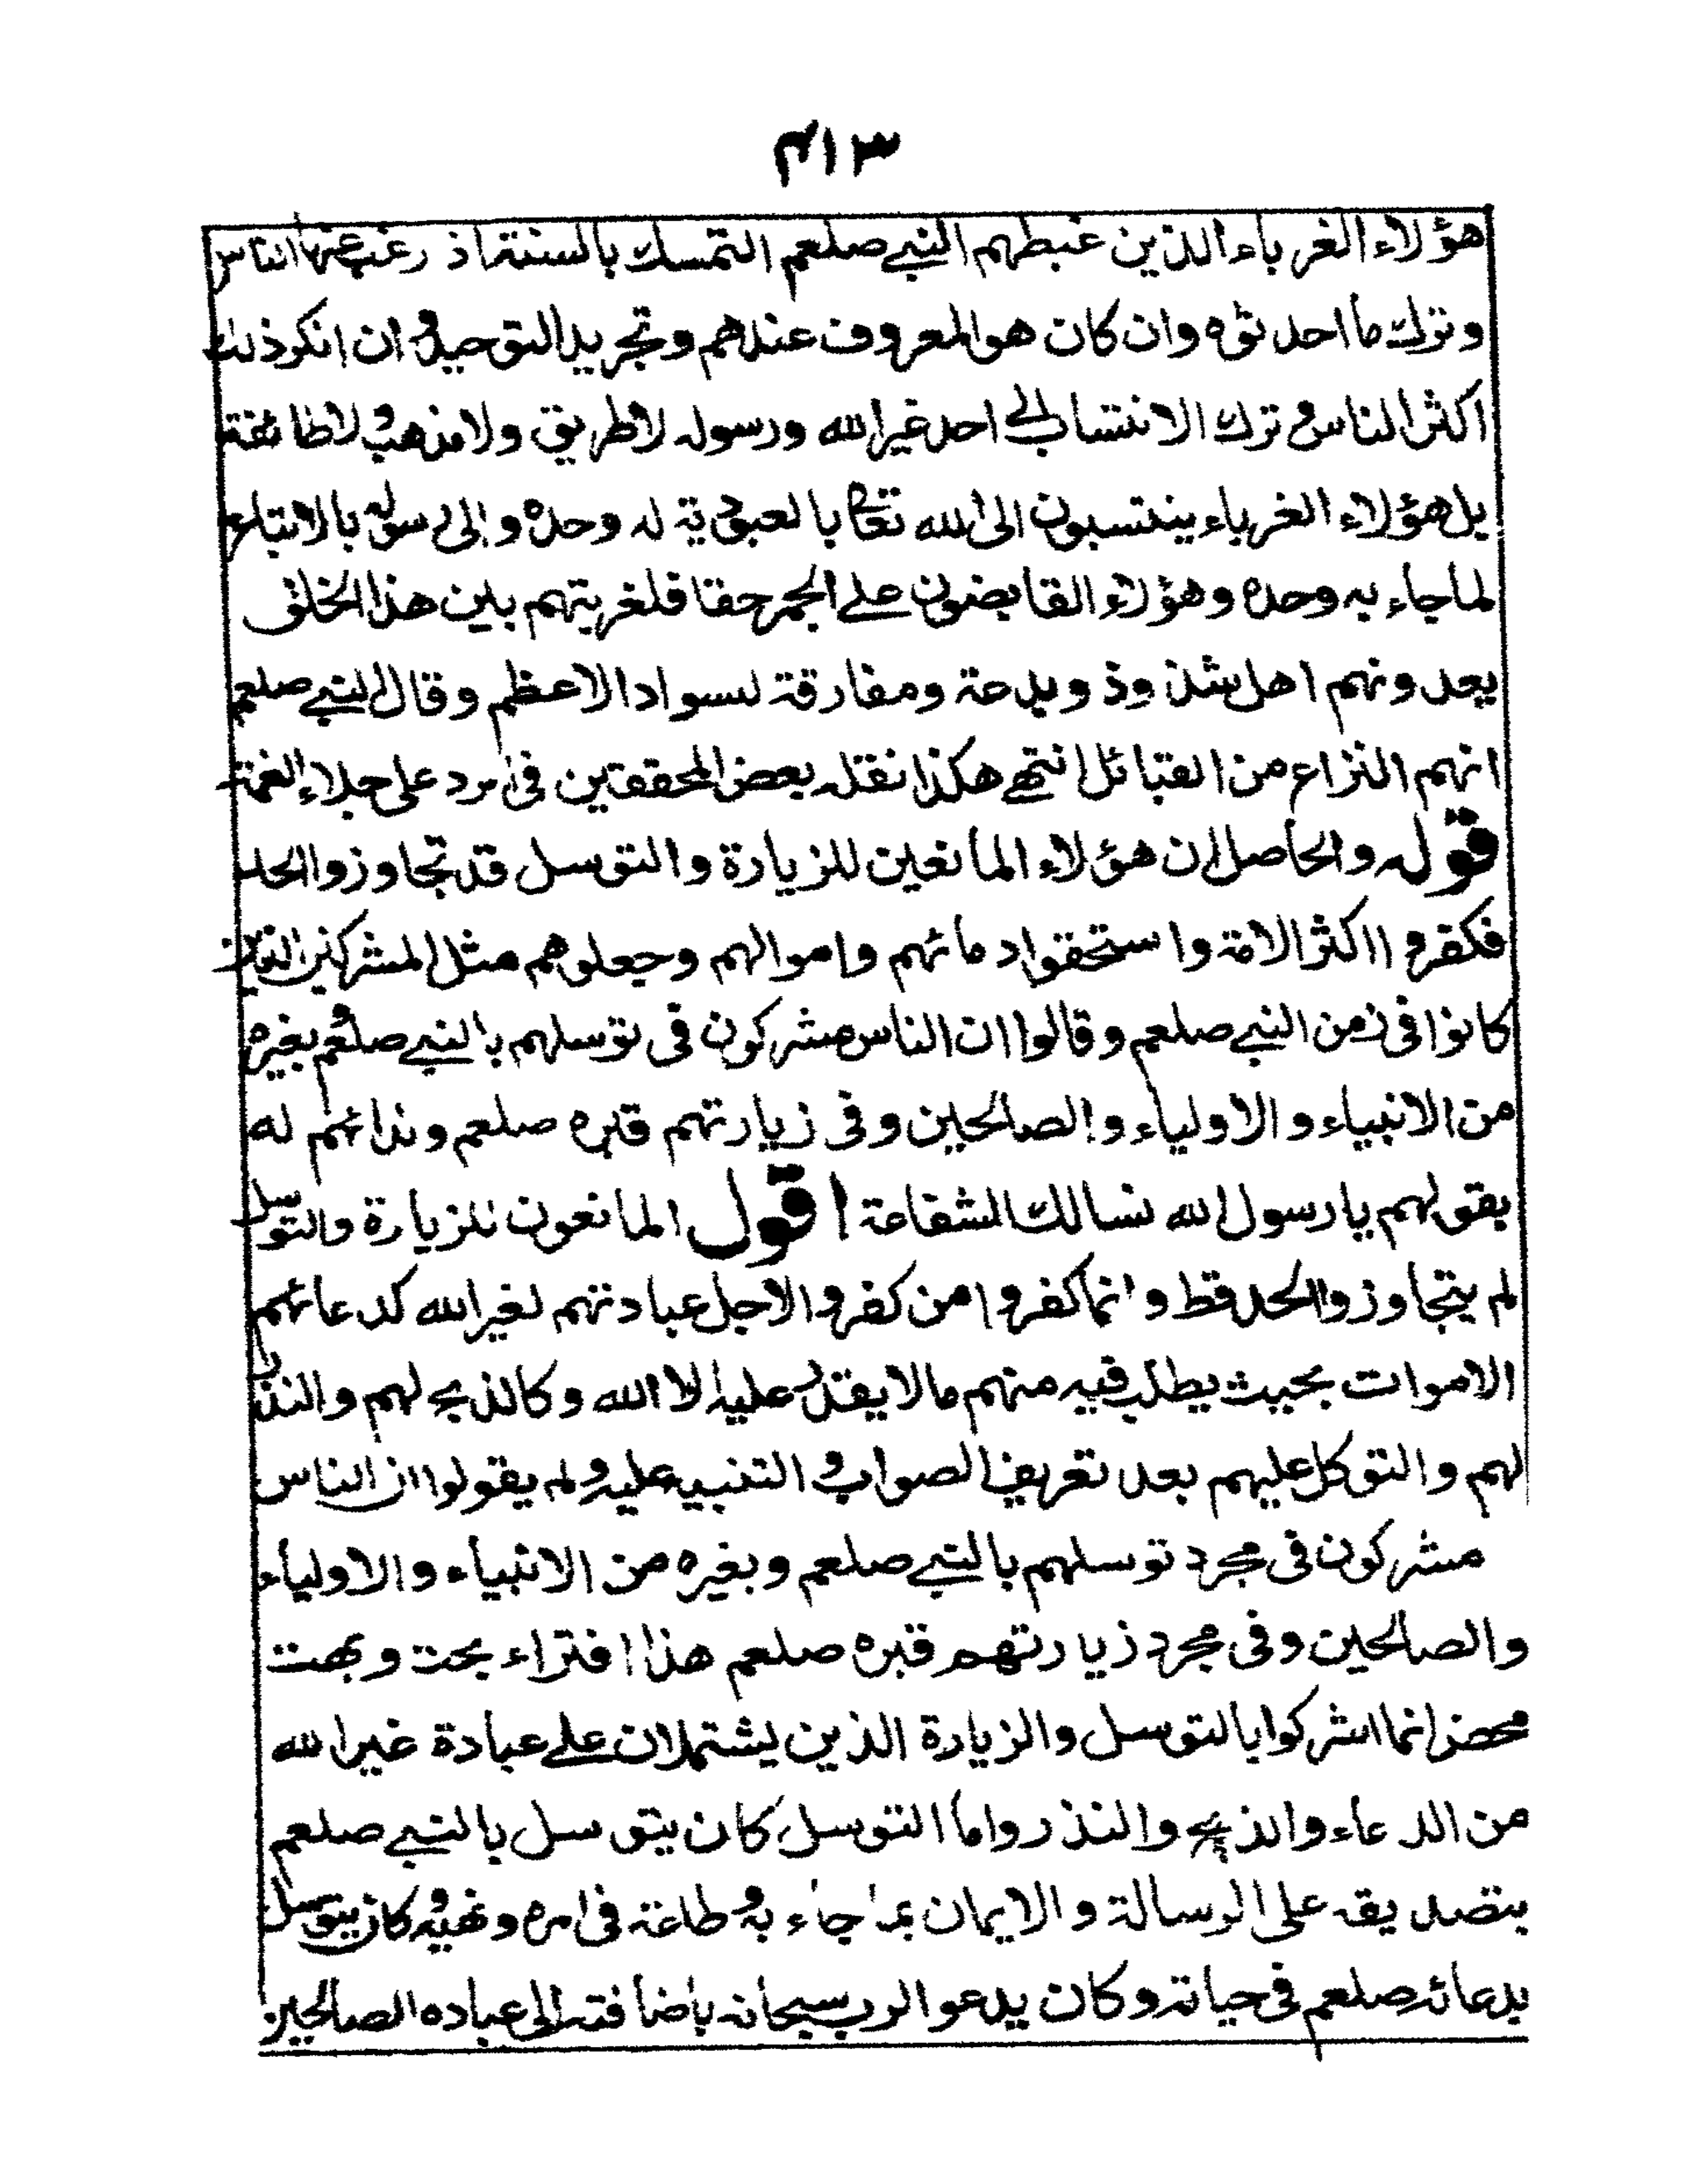 ۳۱۴
هؤلاء الغرباء الذين غبطهم النبي صلعم التمسك بالسنة اذ رغب عنها الناس
وترك ما احدثوه وان كان هو المعروف عندهم وتجريد التوحيد وان انكر ذلك
اكثر الناس وترك الانتساب الى احد غير الله ورسوله لا طريق ولا مذهب ولا طائفة
بل هؤلاء الغرباء ينتسبون الى الله تعالى بالعبودية له وحده والى رسوله بالاتباع
لما جاء به وحده وهؤلاء القابضون على الجمر حقا فلغربتهم بين هذا الخلق
يعدونهم اهل شذوذ وبدعة ومفارقة لسواد الاعظم وقال النبي صلعم
انهم النزاع من القبائل انتهى هكذا نقله بعض المحققين في رد على جلاء الغمة
قوله والحاصل ان هؤلاء المانعين للزيارة والتوسل قد تجاوزوا الحد
فكفروا اكثر الامة واستحقوا دمائهم واموالهم وجعلوهم مثل المشركين الذين
كانوا في زمن النبي صلعم وقالوا ان الناس مشركون في توسلهم بالنبي صلعم وبغيره
من الانبياء والاولياء والصالحين وفي زيارتهم قبره صلعم وندائهم له
بقولهم يا رسول الله نسالك الشفاعة اقول المانعون للزيارة والتوسل
لم يتجاوزوا الحد قط وانما كفروا من كفروا لاجل عبادتهم لغير الله كدعائهم
الاموات بحيث يطلب فيه منهم ما لا يقدر عليه الا الله وكالذبح لهم والنذر
لهم والتوكل عليهم بعد تعريف الصواب والتنبيه عليه ولم يقولوا ان الناس
مشركون في مجرد توسلهم بالنبي صلعم وبغيره من الانبياء والاولياء
والصالحين وفي مجرد زيارتهم قبره صلعم هذا افتراء بحت وبهت
محض انما اشركوا بالتوسل والزيارة الذين يشتملان على عبادة غير الله
من الدعاء والذبح والنذر واما التوسل كان يتوسل بالنبي صلعم
بتصديقه على الرسالة والايمان بما جاء به وطاعته في امره ونهيه وكان يتوسل
بدعائه صلعم في حياته وكان يدعو الرب سبحانه باضافته الى عباده الصالحين